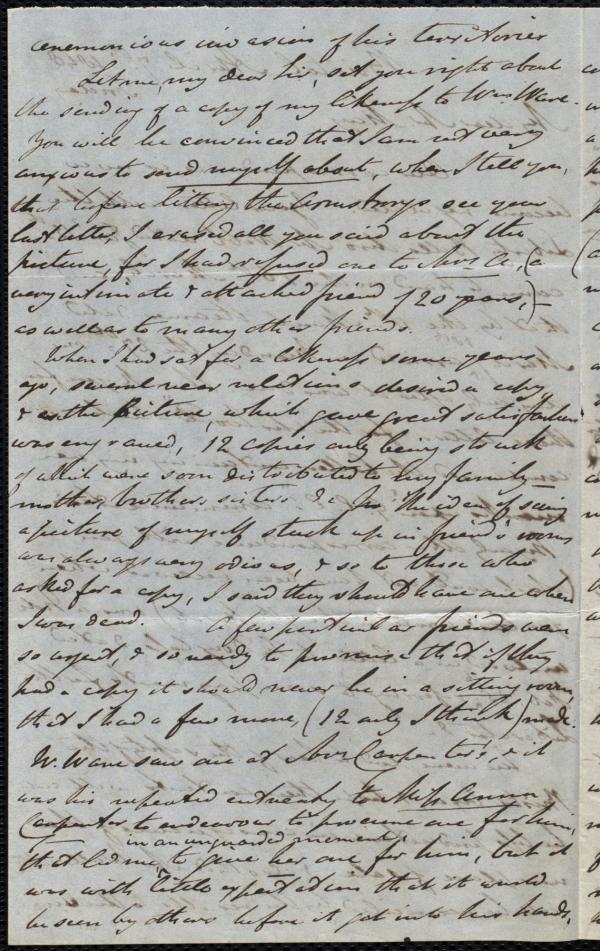 ceremonious invasion of his territories
Let me, my dear Sir, set you right about
the sending of a copy of my likeness to Wm. Ware.
You will be convinced that I am not very
anxious to send myself about, when I tell you,
that before letting the Armstrongs see your
last letter, I erased all you said about the
picture, for I had refused one to Mrs. A., (a
very intimate & attached friend of 20 years,)
as well as to many other friends.
When I had sat for a likeness some years
ago, several near relations desired a copy,
& as the picture, which gave great satisfaction
was engraved, 12 copies only being struck
of which were soon distributed to my family
mother, brothers, sisters &c the idea of seeing
a picture of myself stuck up in friend's rooms
was always very odious, & so to those who
asked for a copy, I said they should have one when
I was dead. A few particular friends were
so urgent, & so ready to promise that if they
had a copy it should never be in a sitting room,
that I had a few more, (12 only I think) made.
W. Ware saw one at Mrs Carpenter's, & it
was his repeated entreaty to Miss Anna
Carpenter to endeavour to procure one for him,
in an unguarded moment,
that led me to give her one for him, but it
was with little expectation that it would
be seen by others before it got into his hands,